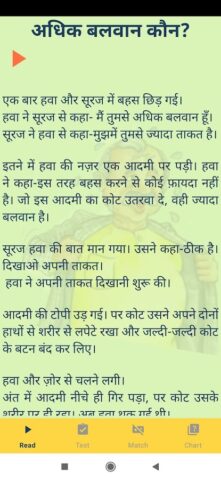 अधिक बलवान कौन?
एक बार हवा और सूरज में बहस छिड़ गई।
हवा ने सूरज से कहा- मैं तुमसे अधिक बलवान हूँ।
सूरज ने हवा से कहा-मुझमें तुमसे ज्यादा ताकत है।
इतने में हवा की नज़र एक आदमी पर पड़ी। हवा
ने कहा-इस तरह बहस करने से कोई फ़ायदा नहीं
है। जो इस आदमी का कोट उतरवा दे, वही ज्यादा
बलवान है।
सूरज हवा की बात मान गया। उसने कहा-ठीक है।
दिखाओ अपनी ताकत।
हवा ने अपनी ताकत दिखानी शुरू की।
आदमी की टोपी उड़ गई। पर कोट उसने अपने दोनों
हाथों से शरीर से लपेटे रखा और जल्दी-जल्दी कोट
के बटन बंद कर लिए।
हवा और ज़ोर से चलने लगी।
अंत में आदमी नीचे ही गिर पड़ा, पर कोट उसके
शरीर पर ही रहा। अब हवा थक गई थी।
Read Test Match Chart